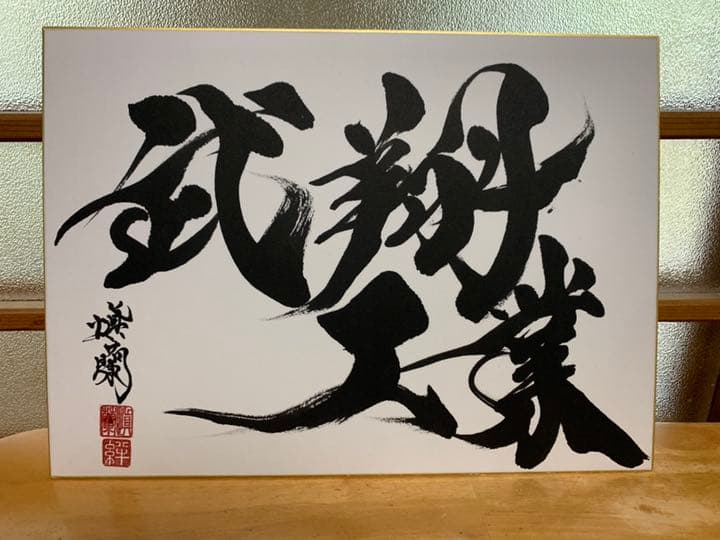 武翔
工業